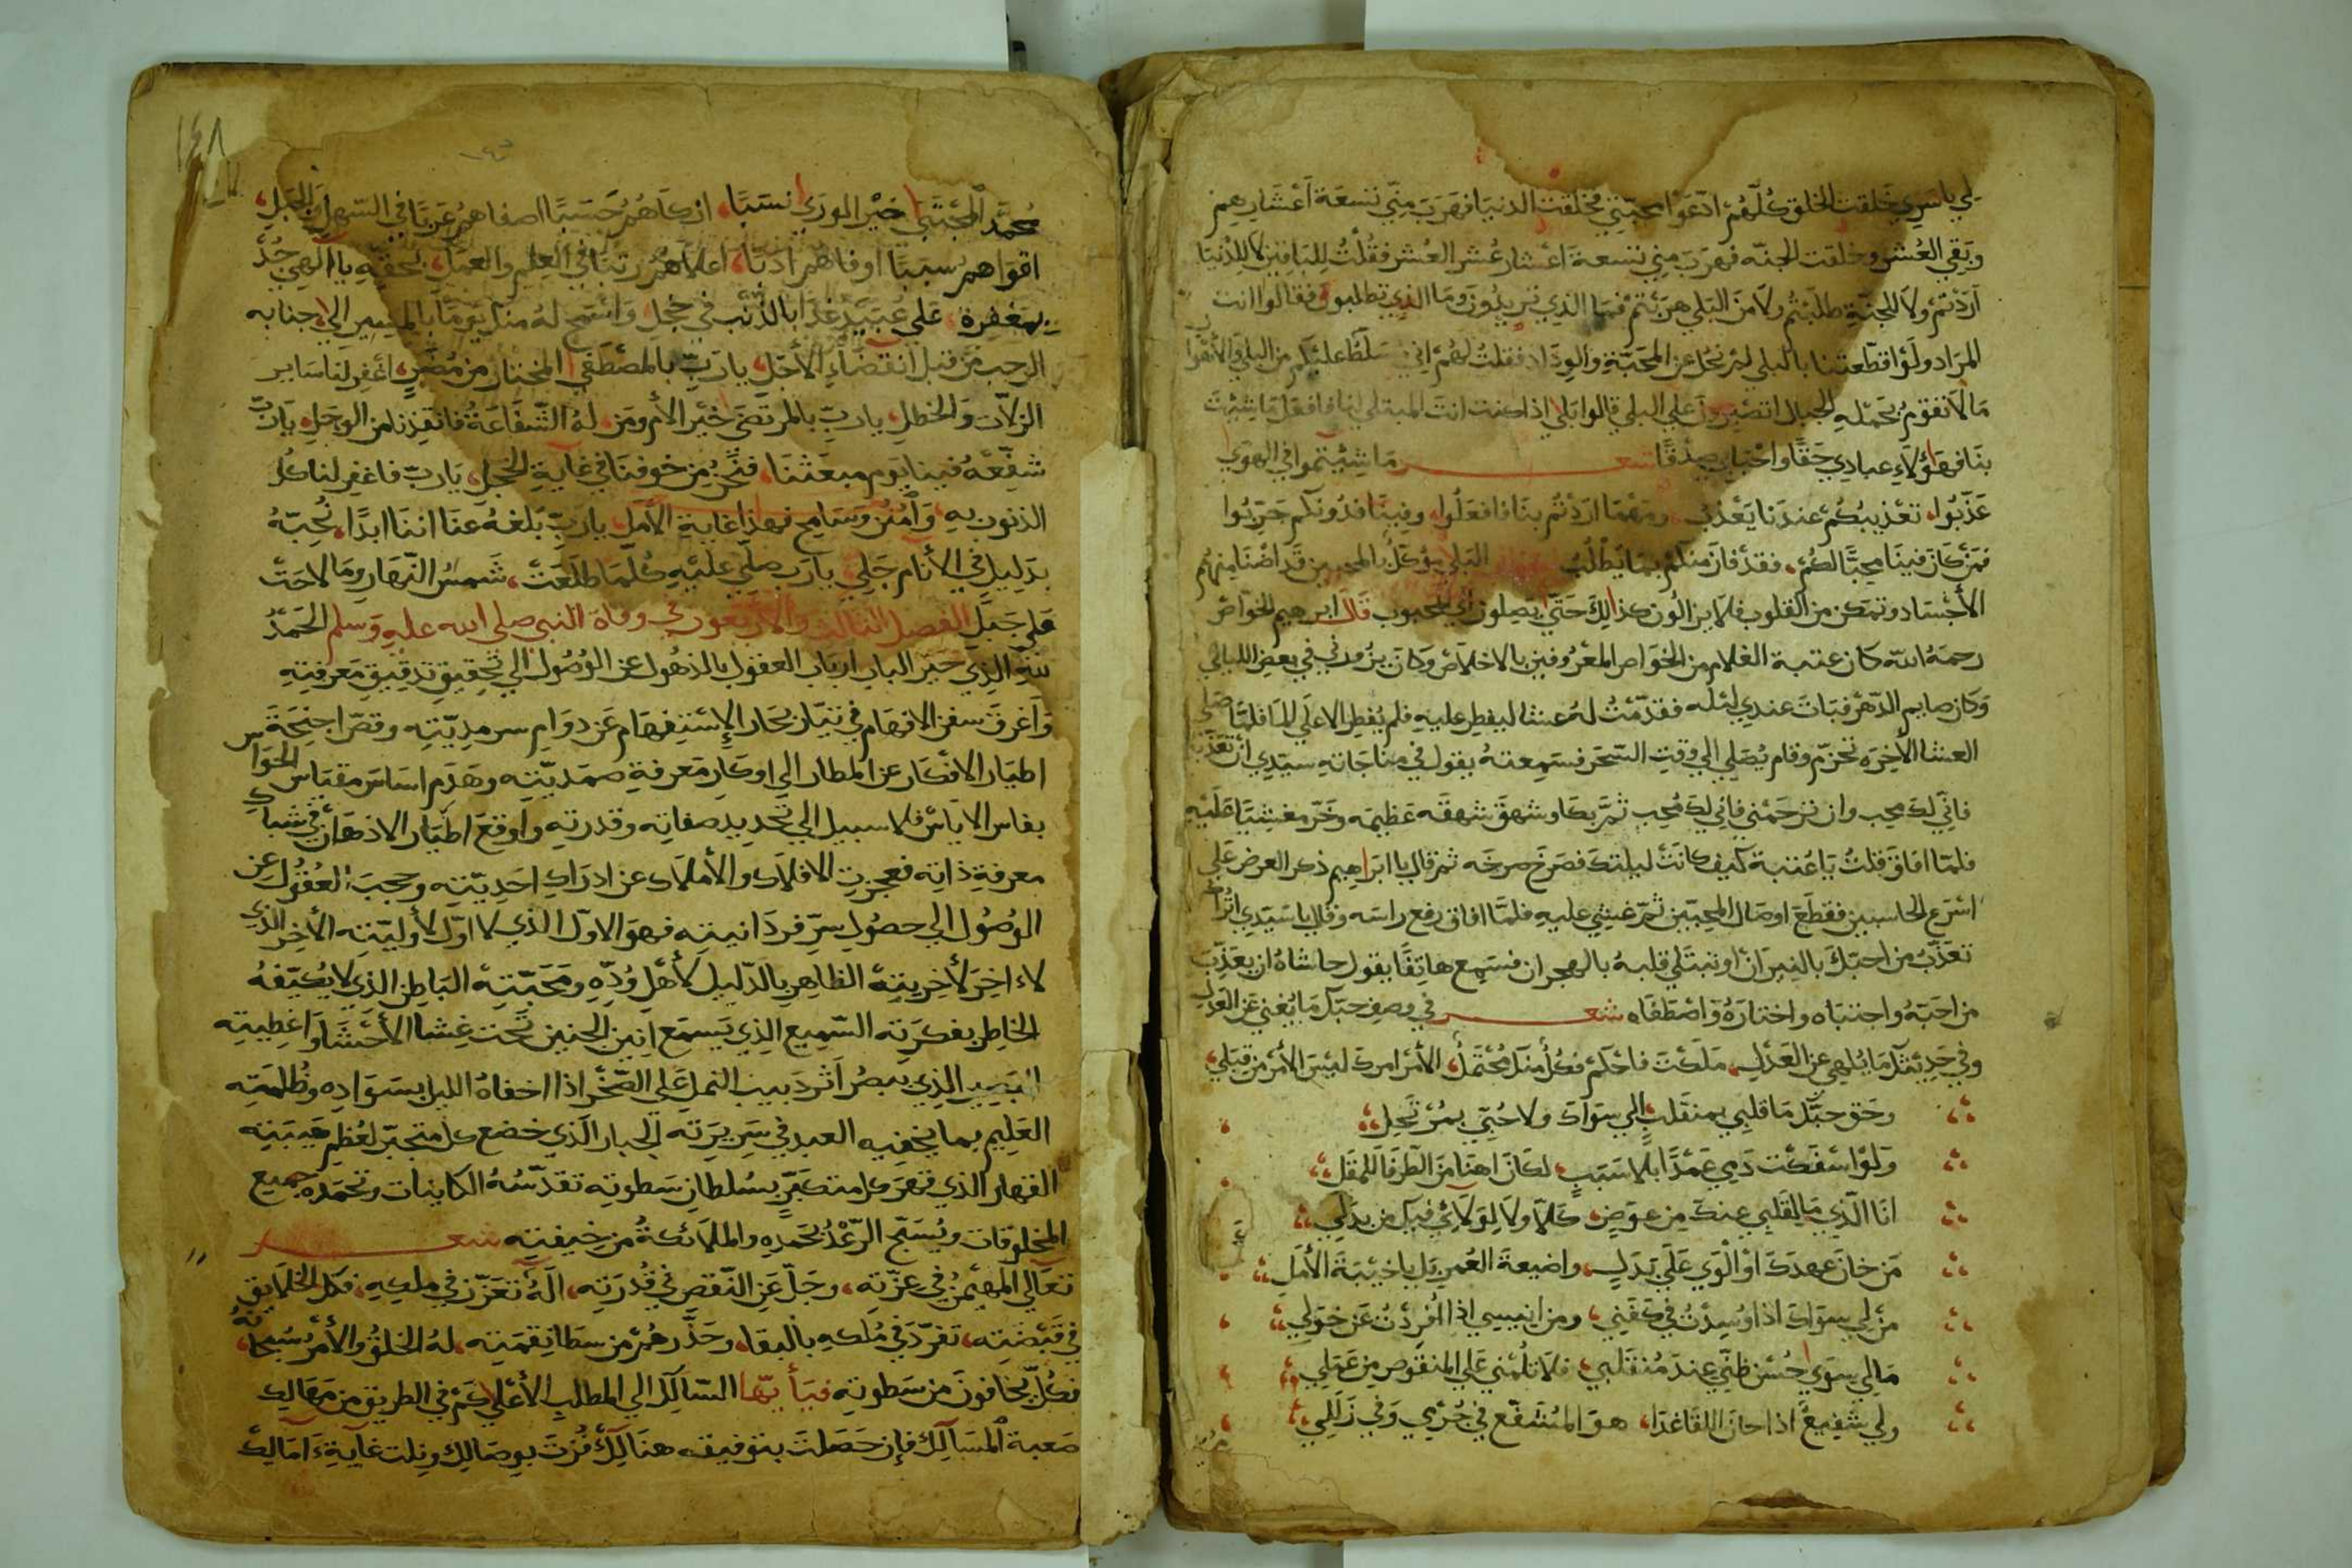 لي ياسري خلقت الخلق كلهم ادعوا محبتي فخلقت الدنيا فهرب مني تسعة اعشارهم
وبقي العشر وخلقت الجنه فهرب مني تسعة اعشار عشر العشر فقلت للباقين لا للدنيا
اردتم ولا للجنة طلبتم ولا من البلي هربتم فما الذي تريدون وما الذي تطلبون فقالوا انت
المراد ولو اقطعتنا بالبلي لم نحل عن المحبة والوداد فقلت لهم اني مسلط عليكم من البلي والاهوال
مالا تقوم بحمله الجبال اتصبرون علي البلي قالوا بلي اذا كنت انت المبتلي لنا فافعل ما شئت
بنا فهؤلاء عبادي حقا واحبابي صدقا شعر ما شيتموا في الهوي
عذبوا، تعذيبكم عندنا يعذب ومهما اردتم بنا فافعلوا، وفينا فدونكم جربوا
فمن كان فينا محبا لكم، فقد فاز منكم بما يطلب البلي موكل بالمحبين قد اضنا منهم
الأجساد وتمكن من القلوب فلا يزالون كذلك حتي يصلون الي المحبوب قال ابرهيم الخواص
رحمه الله كان عتبة الغلام من الخواص المعروفين بالاخلاص وكان يزورني في بعض الليالي
وكان صايم الدهر فبات عندي ليله فقدمت له عشا ليفطر عليه فلم يفطر الا علي الما فلما صلي
العشا الأخره تحزم وقام يصلي الي وقت السحر فسمعته يقول في مناجاته سيدي ان تعذبني
فاني لك محب وان ترحمني فاني لك محب ثم بكا وشهق شهقه عظيمه وخر مغشيا عليه
فلما افاق قلت يا عتبة كيف كانت ليلتك فصرخ صرخه ثم قال يا ابراهيم ذكر العرض علي
اسرع الحاسبين فقطع اوصال المحبين ثم غشي عليه فلما افاق رفع راسه وقال يا سيدي اتراك
تعذب من احبك بالنيران او تبتلي قلبه بالهجران فسمع هاتفا يقول حاشاه ان يعذب
من احبه واجتباه واختاره واصطفاه شعر في وصف حبك ما يغني عن الغزل
وفي حديثك ما يلهي عن العذل، ملكت فاحكم فكل منك محتمل، الأمر امرك ليس الأمر من قبلي،
وحق حبك ما قلبي بمنقلب، الي سواك ولا حبي بمرتحل
ولو اسفكت دمي عمدا بلا سبب، لكان اهنا من الطرف للمقل
انا الذي ما لقلبي عنك من عوض، كلا ولا لولائي فيك من بدل
من خان عهدك او الوي علي بدل، واضيعة العمر بل يا خيبة الأمل
من لي سواك اذا وسدت في كفني، ومن انيسي اذا افردت عن خولي
مالي سوي حسن ظني عند منقلبي، فلا تلمني علي المنقوص من عملي
ولي شفيع اذا حان اللقا غدا، هو المشفع في جرمي وفي زللي
١٤٨
محمد المجتبي خير الوري نسبا، ازكاهم حسبا اصفاهم عربا في السهل والجبل،
اقواهم سببا اوفاهم ادبا، اعلاهم رتبا في العلم والعمل، بحقه يا الهي جد
بمغفرة، علي عبيد غدا بالذنب في خجل، واسمح له منك يوما بالمسير الي، جنابه
الرحب من قبل انقضاء الأجل، يا رب بالمصطفي المختار من مضر، اغفر لنا ساير
الزلات والخطل، يا رب بالمرتضي خير الأم ومن، له الشفاعة فانقذنا من الوجل، يا رب
شفعه فينا يوم مبعثنا، فنحن من خوفنا في غاية الخجل، يا رب فاغفر لنا كل
الذنوب به، وامنن وسامح فهذا غاية الأمل، يا رب بلغه عنا اننا ابدا، نحبه
بدليل في الأنام جلي، يا رب صلي عليه كلما طلعت، شمس النهار وما لاحت
علي جبل الفصل الثالث والأربعون في وفاة النبي صلي الله عليه وسلم الحمد
لله الذي حير الباب ارباب العقول بالذهول عن الوصول الي تحقيق تدقيق معرفته
واغرق سفن الافهام في تيار بحار الإستفهام عن دوام سرمديته وقصر اجنحة
اطيار الافكار عن المطار الي اوكار معرفة صمديته وهدم اساس مقياس الحواس
بفاس الاياس فلا سبيل الي تحديد صفاته وقدرته واوقع اطيار الاذهان في شباك
معرفة ذاته فعجزت الافلاك والأملاك عن ادراك احديته وحجب العقول عن
الوصول الي حصول سر فردانيته فهو الاول الذي لا اول لأوليته الأخر الذي
لا اخر لأخريته الظاهر بالدليل لأهل وده ومحبته الباطن الذي لا يكيفه
الخاطر بفكرته السميع الذي يسمع انين الجنين تحت غشا الأحشا واغطيته
البصير الذي يبصر اثر دبيب النمل علي الصخر اذا اخفاه الليل بسواده وظلمته
العليم بما يخفيه العبد في سريرته الجبار الذي خضع كل متجبر لعظم هيبته
القهار الذي قهر كل متكبر بسلطان سطوته تقدسه الكاينات وتحمده جميع
المخلوقات ويسبح الرعد بحمده والملائكة من خيفته شعر
تعالي المهيمن في عزته، وجل عن النقص في قدرته، اله تعزز في ملكه، فكل الخلايق
في قبضته، تفرد في ملكه بالبقا، وحذرهم من سطا نقمته، له الخلق والأمر سبحانه،
فكل يخافون من سطوته فيأيها السالك الي المطلب الأعلي كم في الطريق من مهالك
صعبة المسالك فإن حصلت بتوفيق هنالك فزت بوصالك ونلت غاية امالك